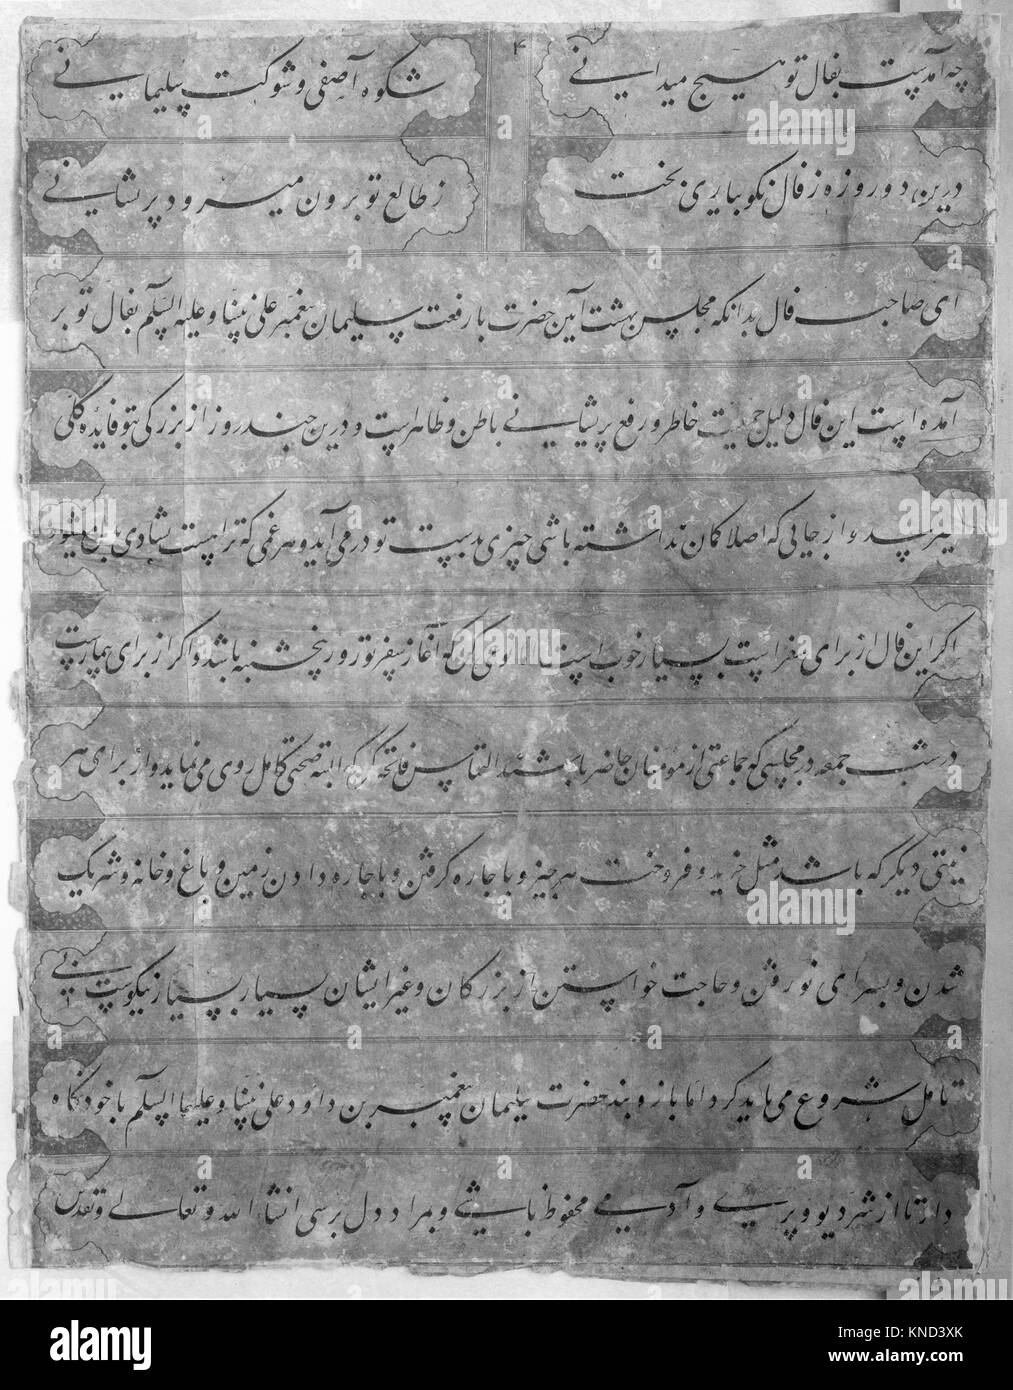 ۴
چه آمدست بفال تو هیچ میدانی شکوه آصفی و شوکت سلیمانی
درین دو روزه ز فال نکو بیاری بخت ز طالع تو برون میرود پریشانی
ای صاحب فال بدانکه مجلس بهشت آیین حضرت با رفعت سلیمان پیغمبر علی نبینا و علیه السلام بفال تو بر
آمده است این فال دلیل جمعیت خاطر و رفع پریشانی باطن و ظاهر است و درین چند روز از بزرگی بتو فایده کلی
میرسد و از جایی که اصلا کمان نداشته باشی چیزی بدست تو در می آید و هر غمی که تراست بشادی بدل میشود
اکر این فال از برای سفر است بسیار خوب است اما کوی کن که آغاز سفر تو روز پنجشنبه باشد و اکر از برای بیمارست
در شب جمعه در مجلسی که جماعتی از مومنان حاضر باشند التماس فاتحه کن که البته صحتی کامل روی می نماید و از برای هر
نیتی دیگر که باشد مثل خرید و فروخت هر چیز و باجاره کرفتن و باجاره دادن زمین و باغ و خانه و شریک
شدن و بسرای نو رفتن و حاجت خواستن از بزرکان و غیر ایشان بسیار بسیار نیکوست بی
تامل شروع می باید کرد اما بازوبند حضرت سلیمان پیغمبر بن داود علی نبینا و علیهما السلام با خود نکاه
دار تا از شر دیو و پری و آدمی محفوظ باشی و بمراد دل برسی انشاء الله و تعالی و تقدس
alamy
Image ID: KND3XK
www.alamy.com